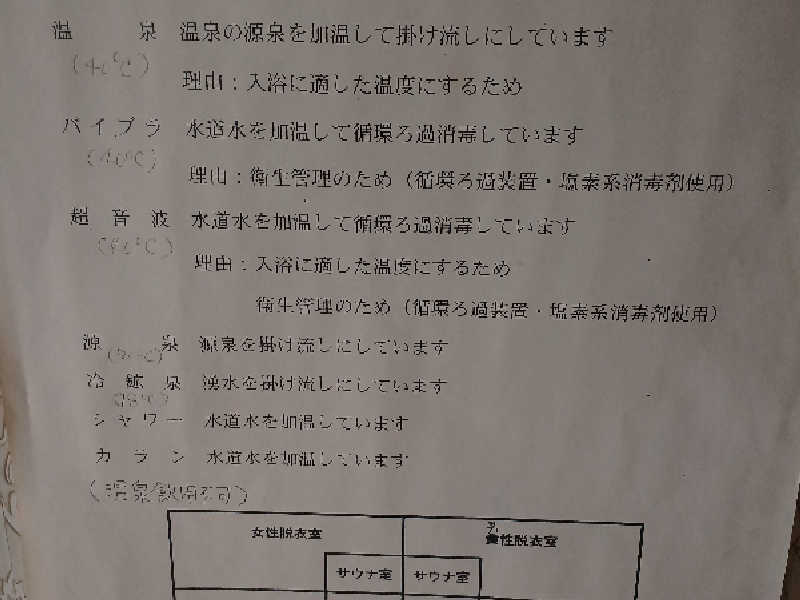 温泉 温泉の源泉を加温して掛け流しにしています
(40℃)
理由：入浴に適した温度にするため
バイブラ 水道水を加温して循環ろ過消毒しています
(40℃)
理由：衛生管理のため（循環ろ過装置・塩素系消毒剤使用）
超音波 水道水を加温して循環ろ過消毒しています
理由：入浴に適した温度にするため
衛生管理のため（循環ろ過装置・塩素系消毒剤使用）
源泉 源泉を掛け流しにしています
冷鉱泉 湧水を掛け流しにしています
シャワー 水道水を加温しています
カラン 水道水を加温しています
(温泉飲用不可)
女性脱衣室 性脱衣室
サウナ室 サウナ室